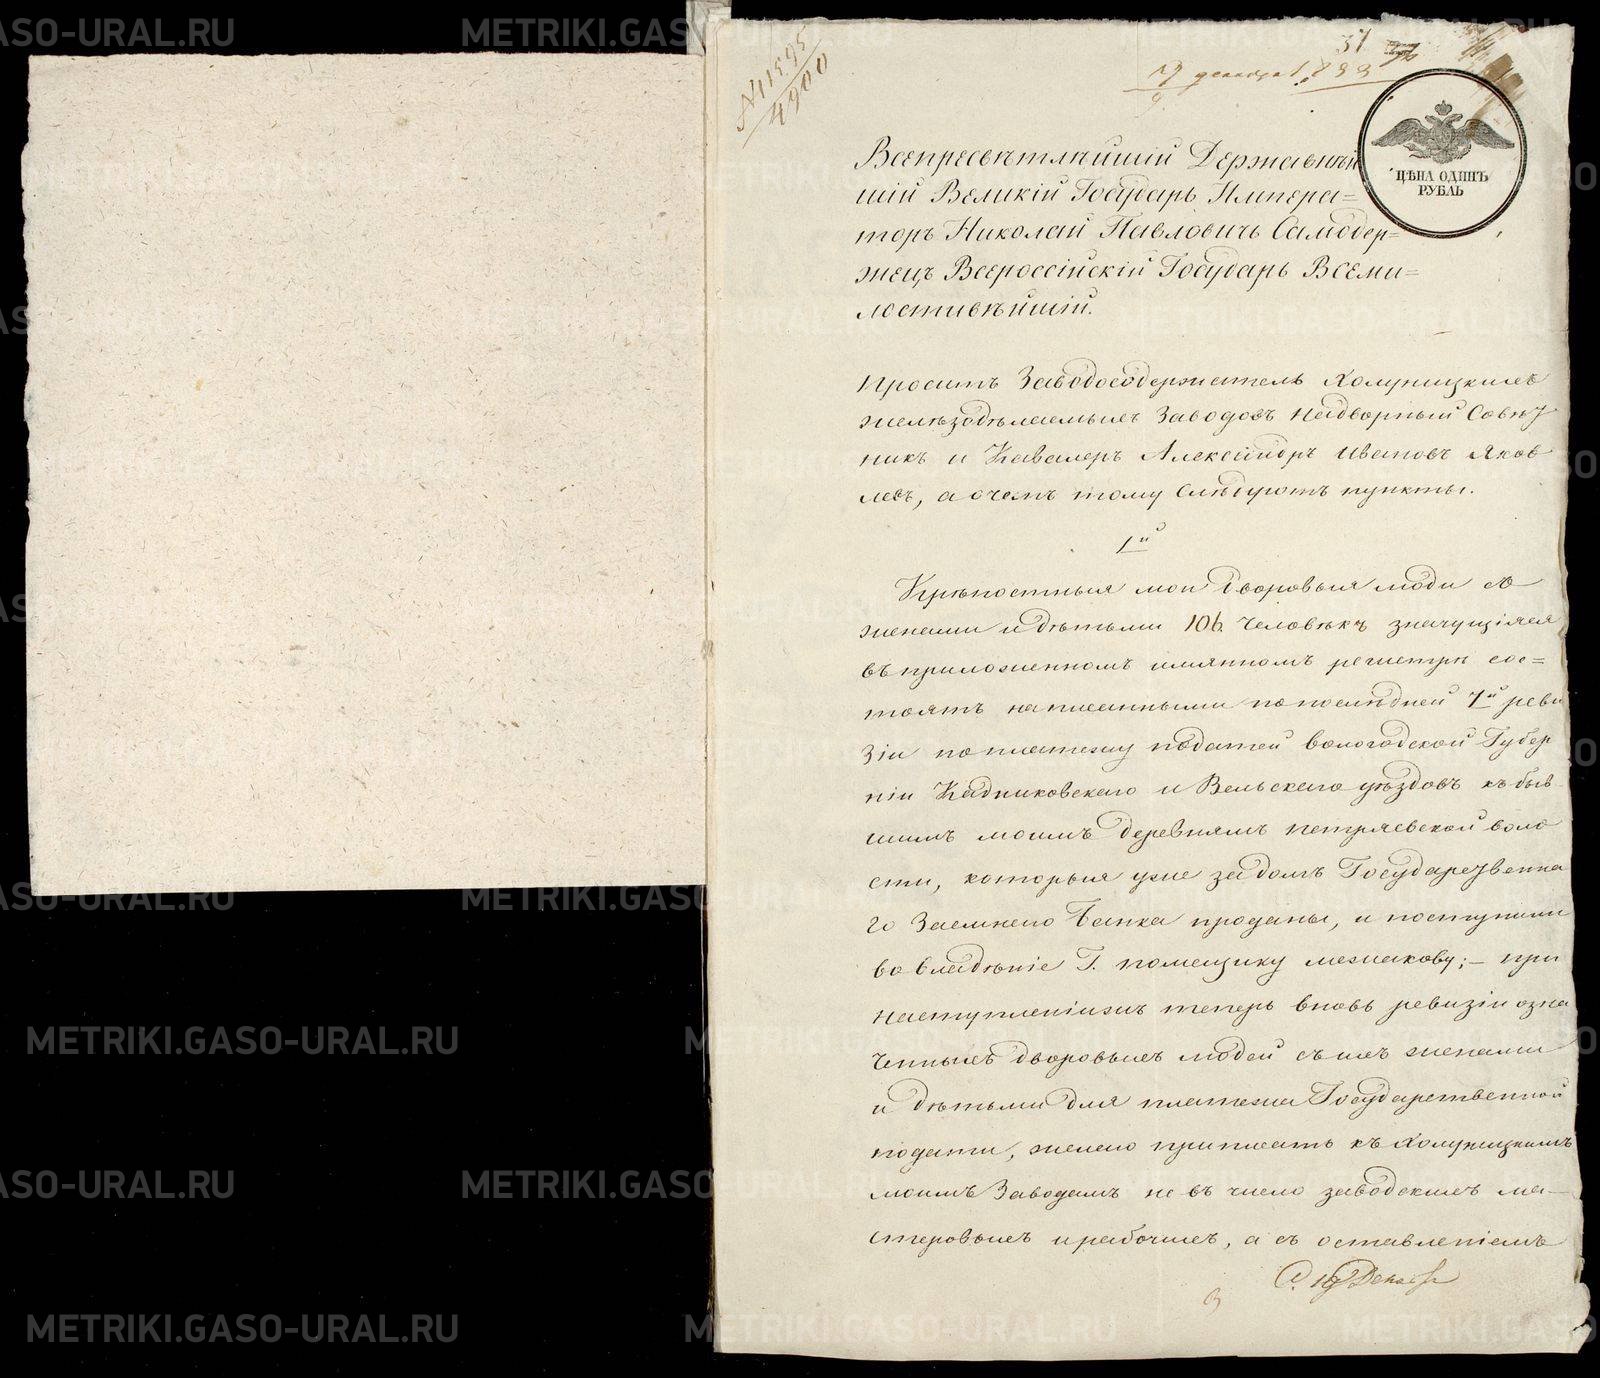 №11595
4900
31
19 декабря 1833
Всепресвѣтлѣйшій Державнѣй
шій Великій Государь Импера=
торъ Николай Павловичь Самодер=
жецъ Всероссійскій Государь Всеми=
лостивѣйшій.
ЦѢНА ОДИНЪ
РУБЛЬ
Проситъ Заводосодержатель Холуницкихъ
желѣзодѣлаемыхъ Заводовъ Надворный Совѣт
никъ и Кавалеръ Александръ Ивановъ Яков
левъ, а о чемъ тому Слѣдуютъ пункты.
1й
Крѣпостныя мои дворовыя люди съ
женами и дѣтьми 106 Человѣкъ значущіяся
въ приложенномъ имянномъ регистрѣ сос=
тоятъ написанными по послѣдней 7й реви
зіи по платежу податей вологодской Губер
ніи Кадниковскаго и Вельскаго уѣздовъ къ быв
шимъ моимъ деревнямъ петряевской воло
сти, которыя уже за долгъ Государственна
го Заемнаго Банка проданы, и поступили
во владѣніе Г. помещику межакову; – при
наступленіи же теперь вновь ревизіи озна
ченныхъ дворовыхъ людей съ ихъ женами
и дѣтьми для платежа Государственной
подати, желаю приписать къ Холуницкимъ
моимъ Заводамъ не въ число заводскихъ ма–
стеровыхъ и рабочихъ, а съ оставленіемъ